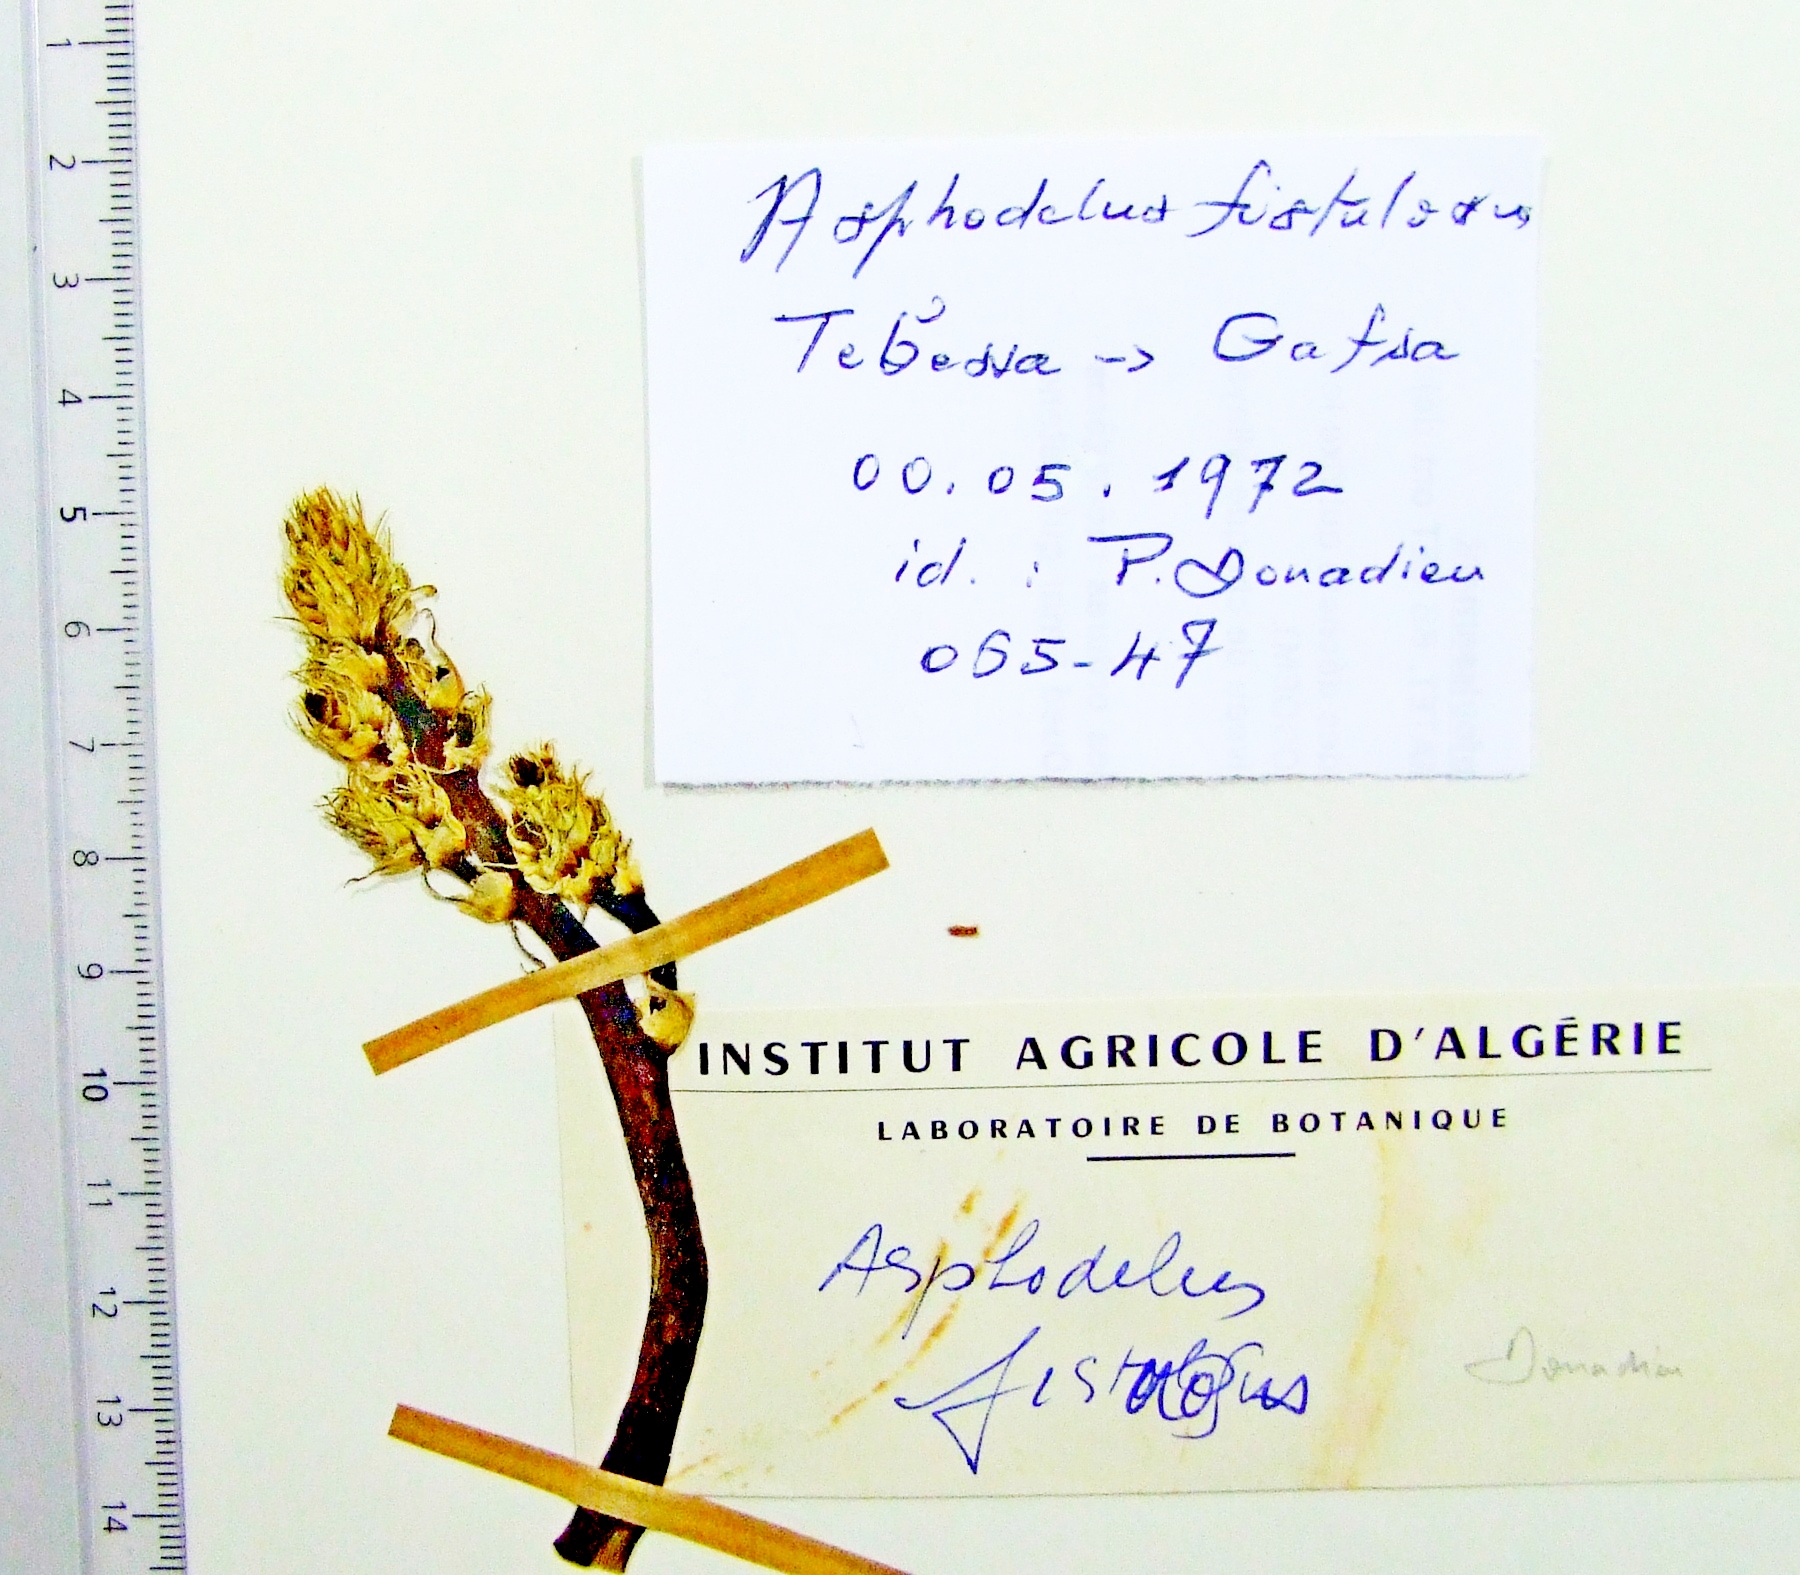 Asphodelus fistulosus
Tebéssa -> Gafsa
00.05.1972
id. : P. Donadieu
065-47
INSTITUT AGRICOLE D'ALGÉRIE
LABORATOIRE DE BOTANIQUE
Asphodelus
Donadieu
1
2
3
4
5
6
7
8
9
10
11
12
13
14